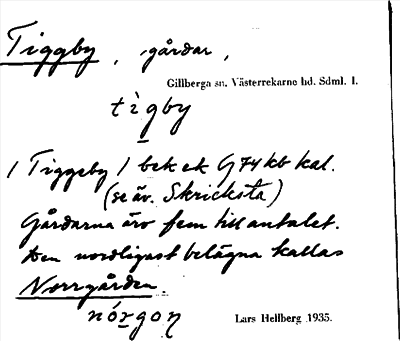 Tiggby, gårdar,
Gillberga sn. Västerrekarne hd. Sdml. l.
tìgby
/Tiggeby/ bek ek G74 kb kal.
(se äv. Skricksta)
Gårdarna äro fem till antalet.
Den nordligast belägna kallas
Norrgården.
nórgoɳ
Lars Hellberg 1935.